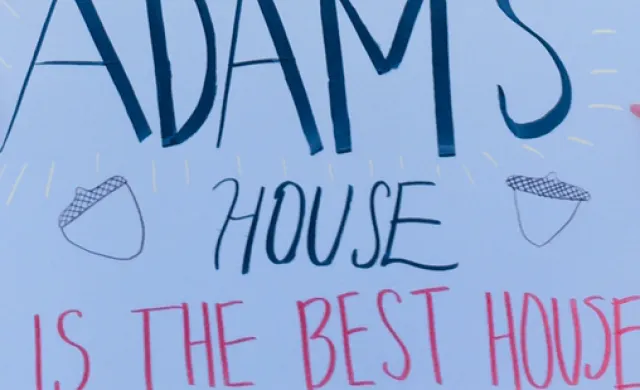 ADAMS
HOUSE
IS THE BEST HOUSE